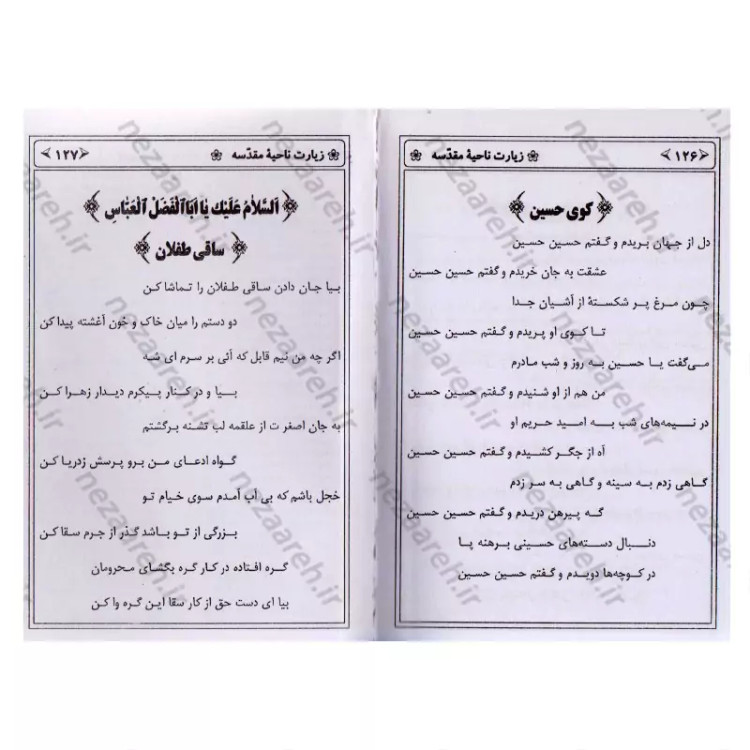 ۱۲۶ زیارت ناحیهٔ مقدّسه
کوی حسین
دل از جهان بریدم و گفتم حسین حسین
عشقت به جان خریدم و گفتم حسین حسین
چون مرغ پر شکستهٔ از آشیان جدا
تـا کوی او پریدم و گفتم حسین حسین
می‌گفت یـا حسین به روز و شب مادرم
من هم از او شنیدم و گفتم حسین حسین
در نـیمه‌های شب به امید حریم او
آه از جگر کشیدم و گفتم حسین حسین
گـاهی زدم به سینه و گاهی به سر زدم
گه پیرهن دریدم و گفتم حسین حسین
دنبـال دسته‌های حسینی برهنه پـا
در کوچه‌ها دویدم و گفتم حسین حسین
۱۲۷ زیارت ناحیهٔ مقدّسه
اَلسَّلاٰمُ عَلَیْكَ یٰا اَبَاالْفَضْلِ الْعَبّٰاسِ
ساقی طفلان
بـیا جـان دادن ساقی طفلان را تـماشا کـن
دو دستم را میان خاک و خون آغشته پیدا کن
اگر چه من نیم قابل که آئی بر سرم ای شه
بـیا و در کـنار پیکرم دیـدار زهـرا کـن
به جان اصغر ت از علقمه لب تشنه برگشتم
گـواه ادعـای مـن بـرو پرسش زدریـا کـن
خجل باشم که بی آب آمدم سوی خیام تو
بزرگی از تـو بـاشد گذر از جـرم سـقا کـن
گـره افتاده در کـار گره بگشای محرومان
بیا ای دست حق از کار سقا این گره وا کن
nezaareh.ir